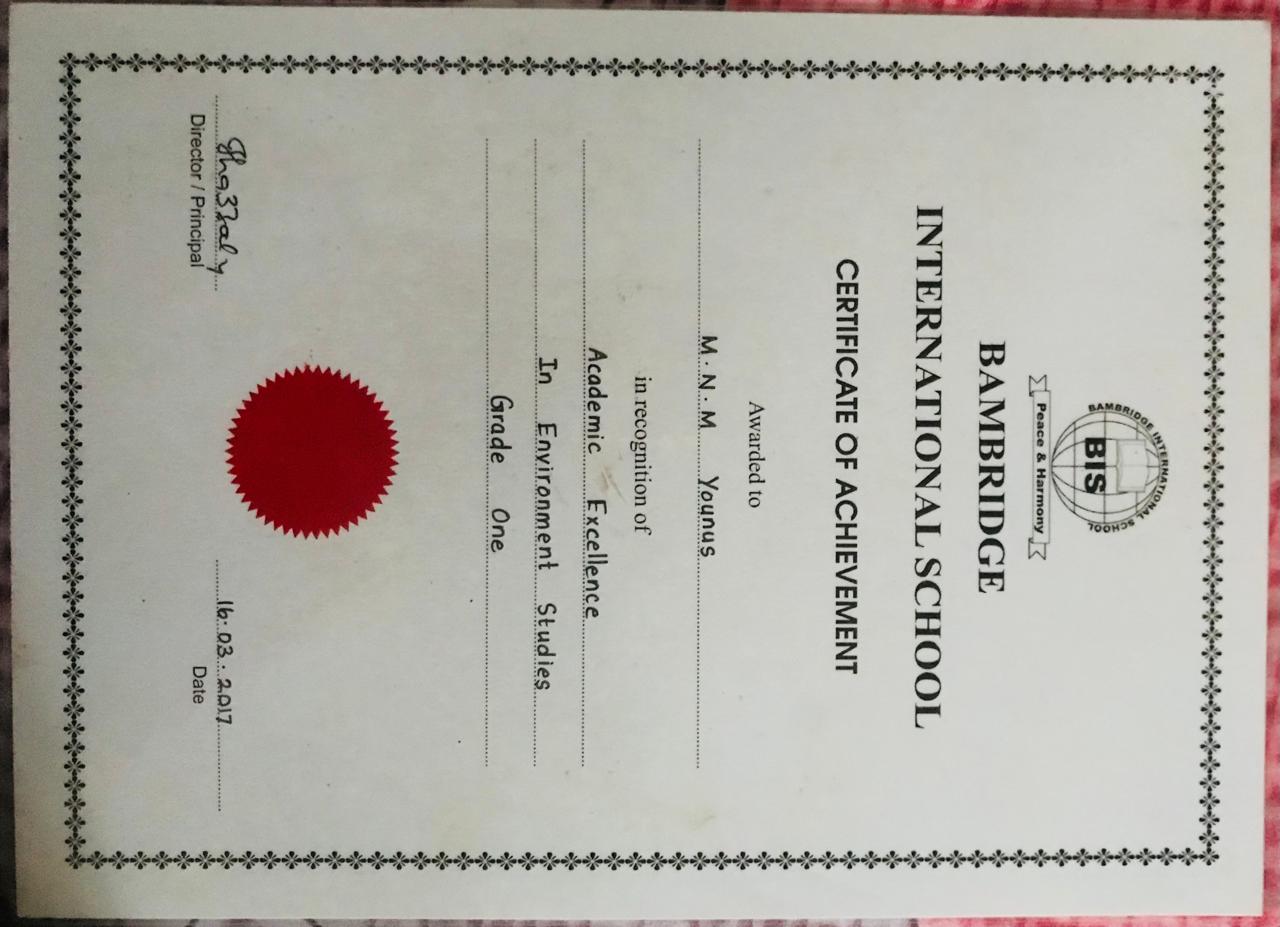 BAMBRIDGE INTERNATIONAL SCHOOL
BIS
Peace & Harmony
BAMBRIDGE
INTERNATIONAL SCHOOL
CERTIFICATE OF ACHIEVEMENT
Awarded to
M.N.M Younus
in recognition of
Academic Excellence
In Environment Studies
Grade One
16.03.2017
Director / Principal
Date